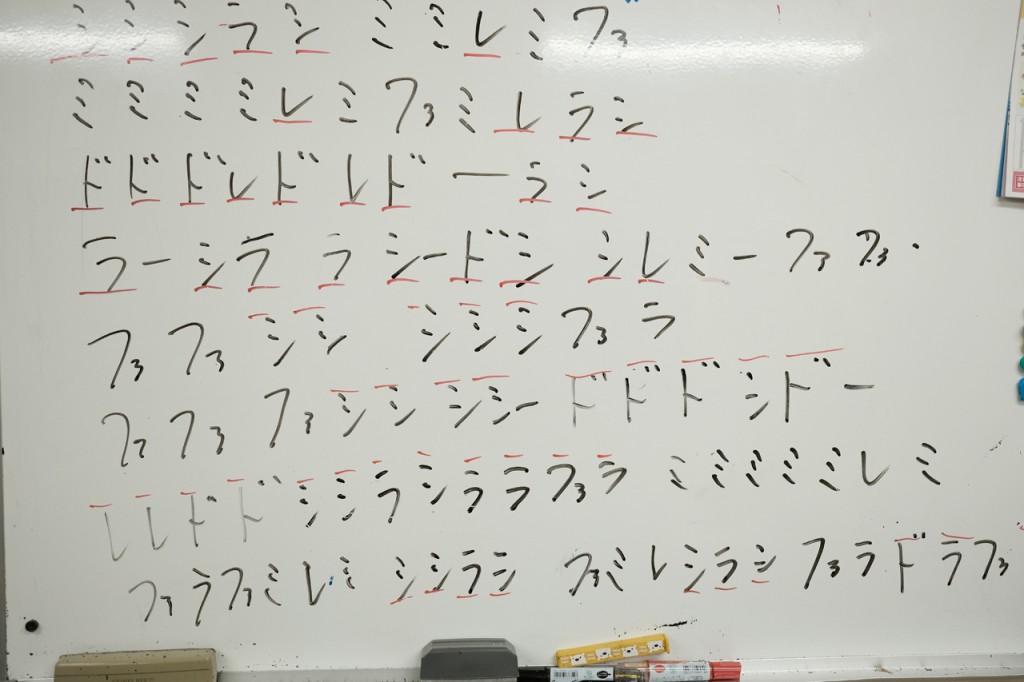 シシシラシ ミミレミファ
ミミミミレミファミレラシ
ドドドレドレドーラシ
ラーシラ ラシードシ シレミーファファ・
ファファシシ シシシファラ
ファファファシシシシードドドシドー
レレドドシシラシララファラ ミミミミミレミ
ファラファミレミ シシラシ ファミレシラシファラドラファ